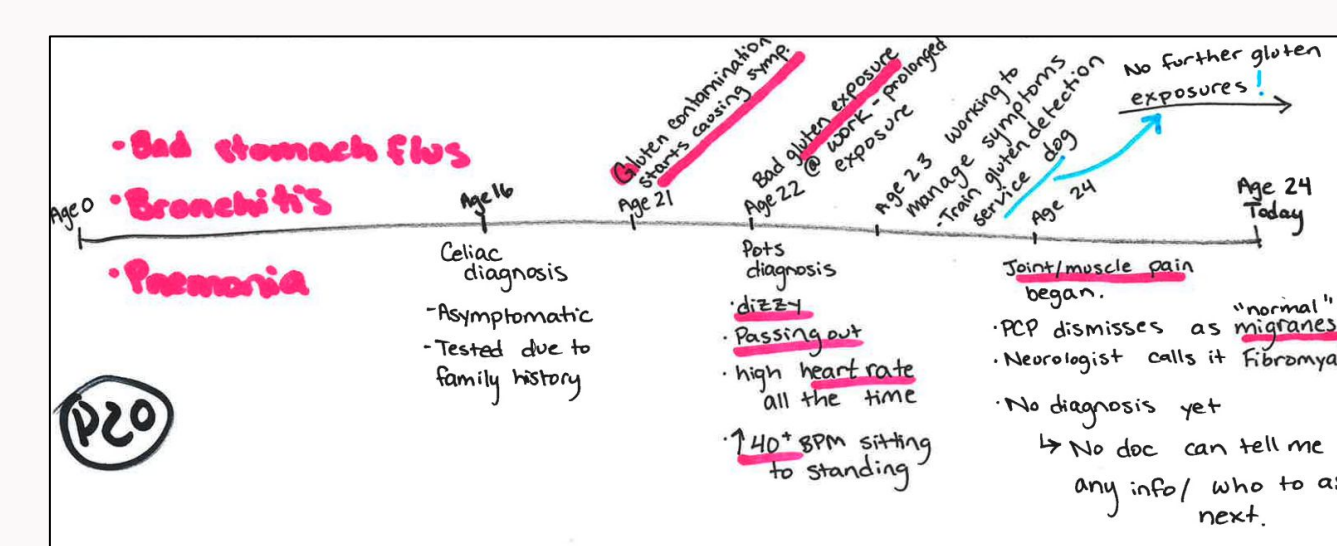 Age 0
•Bad stomach flus
•Bronchitis
•Pnemonia
P20
Age 16
Celiac
diagnosis
-Asymptomatic
-Tested due to
family history
Gluten contamination
starts causing symp.
Age 21
Bad gluten exposure
Age 22 @ work - prolonged
exposure
Pots
diagnosis
·dizzy
·Passing out
·high heart rate
all the time
·↑40+ BPM sitting
to standing
Age 23 working to
manage symptoms
-Train gluten detection
service dog
Age 24
No further gluten
exposures!
Joint/muscle pain
began.
·PCP dismisses as "normal"
migranes
·Neurologist calls it Fibromya
·No diagnosis yet
↳ No doc can tell me
any info/ who to as
next.
Age 24
Today